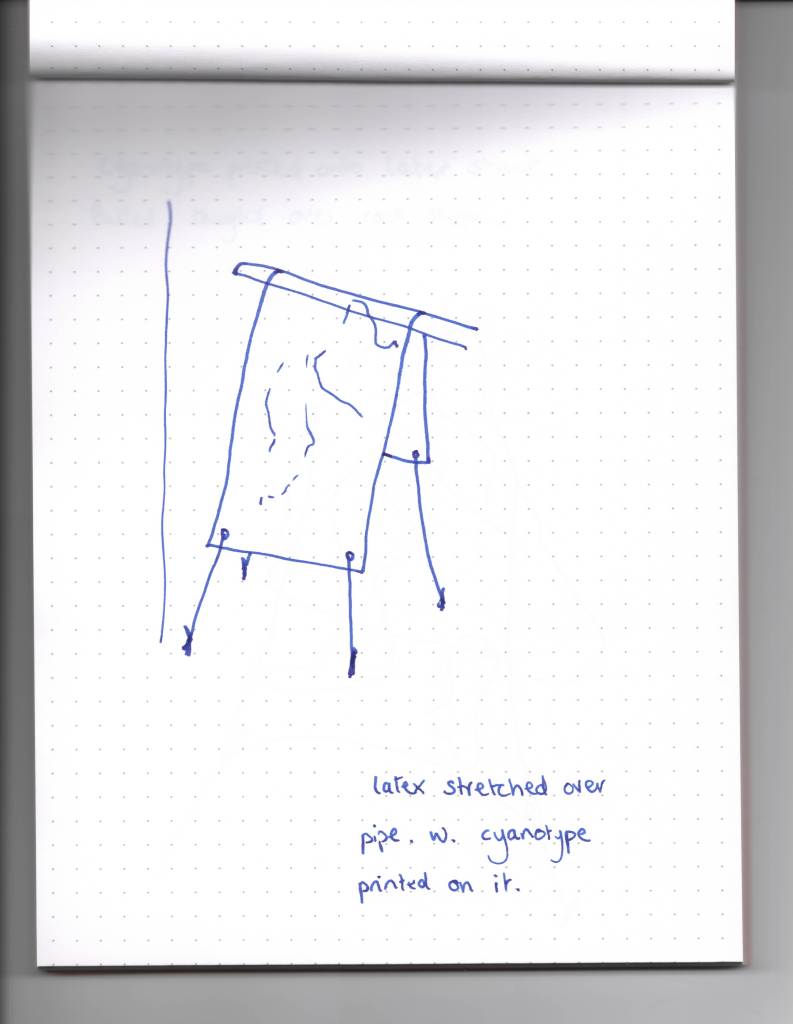 latex stretched over
pipe. w. cyanotype
printed on it.